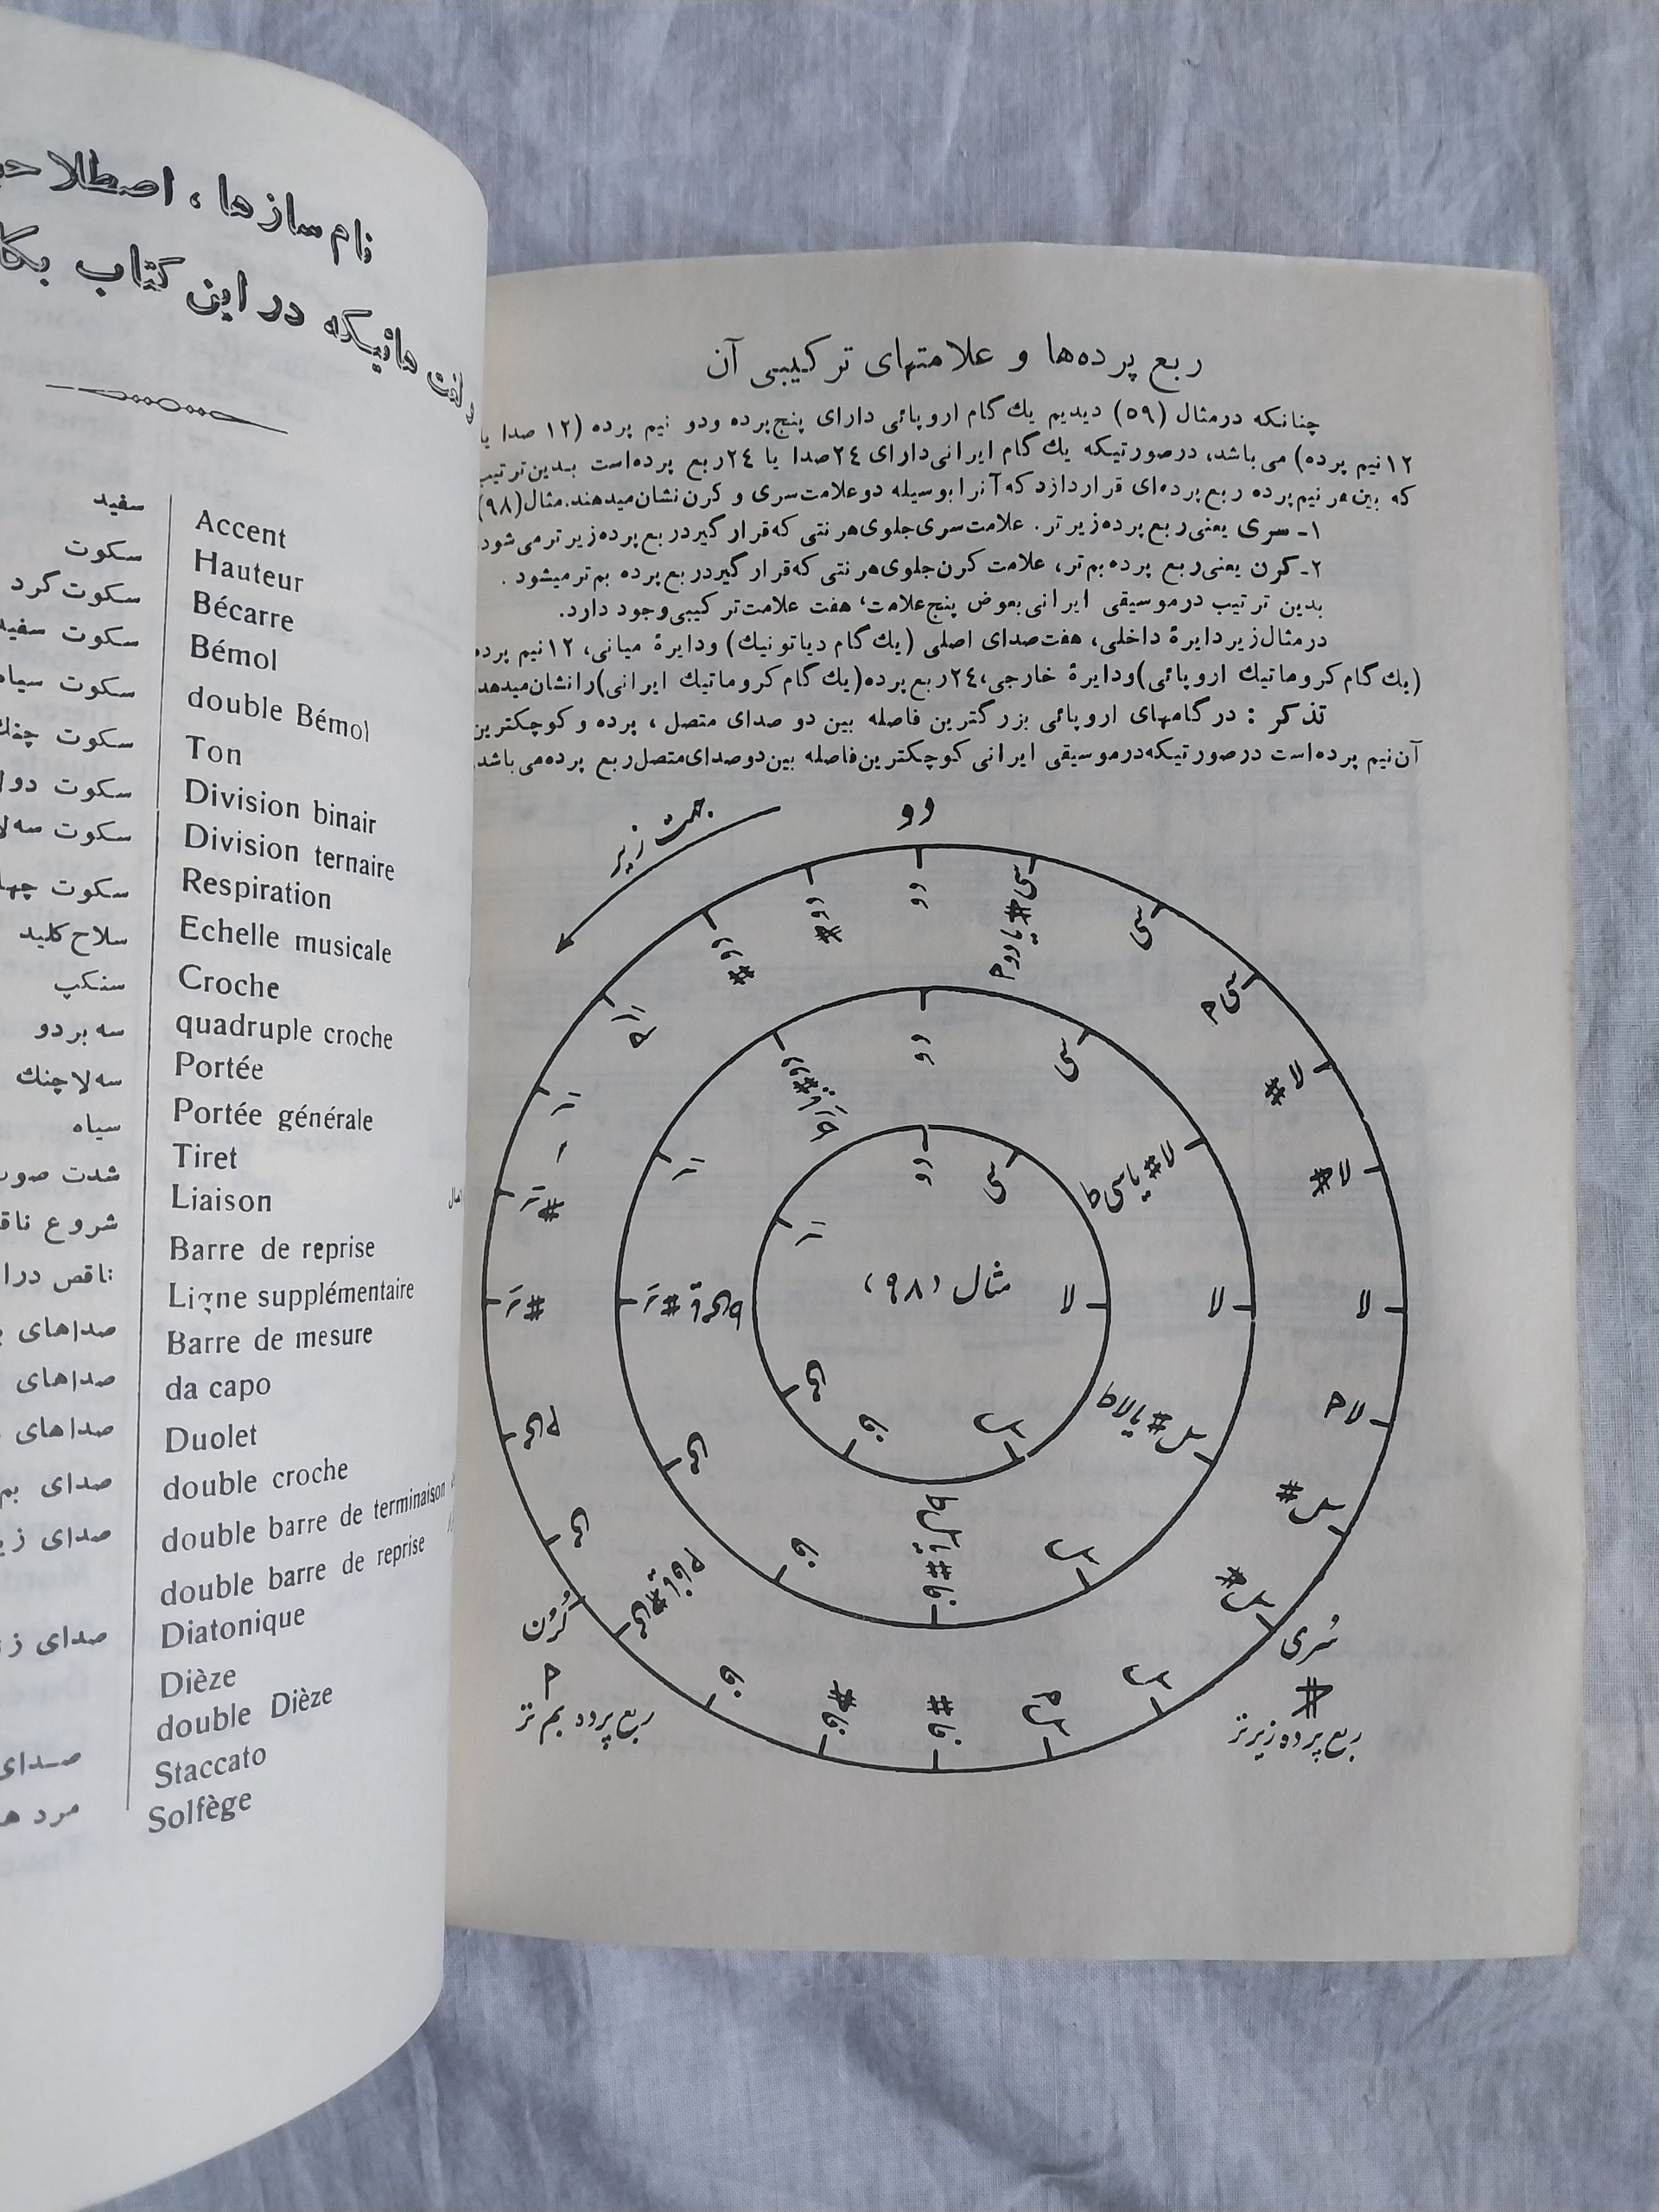 نام سازها، اصطلاحـ
هائیکه در این کتاب بکا
سفید
سکوت
سکوت گرد
سکوت سفید
سکوت سیاه
سکوت چنك
سکوت دولا
سکوت سه‌لا
سکوت چها
سلاح کلید
سنکپ
سه بر دو
سه لاچنك
سیاه
شدت صوت
شروع ناقـ
ناقص درا
صداهای
صداهای
صداهای
صدای بم
صدای زیـ
صدای ز
صدای
مرد هـ
Accent
Hauteur
Bécarre
Bémol
double Bémol
Ton
Division binair
Division ternaire
Respiration
Echelle musicale
Croche
quadruple croche
Portée
Portée générale
Tiret
Liaison
Barre de reprise
Ligne supplémentaire
Barre de mesure
da capo
Duolet
double croche
double barre de terminaison
double barre de reprise
Diatonique
Dièze
double Dièze
Staccato
Solfège
ربع پرده‌ها و علامتهای ترکیبی آن
چنانکه درمثال (۵۹) دیدیم یك گام اروپائی دارای پنج پرده ودو نیم پرده (۱۲ صدا یا
۱۲ نیم پرده) می‌باشد، درصورتیکه یك گام ایرانی دارای ۲۴ صدا یا ۲۴ ربع پرده‌است بـدین ترتیب
که بین هر نیم پرده ربع پرده‌ای قراردارد که آنرا بوسیله دو علامت سری و کرن نشان میدهند. مثال (۹۸)
۱ـ سری یعنی ربع پرده زیرتر. علامت سری جلوی هر نتی که قرار گیرد ربع پرده زیر تر می‌شود
۲ـ کرن یعنی ربع پرده بم تر، علامت کرن جلوی هر نتی که قرار گیرد ربع پرده بم تر میشود .
بدین ترتیب درموسیقی ایرانی بعوض پنج علامت، هفت علامت ترکیبی وجود دارد.
درمثال زیر دایرۀ داخلی، هفت صدای اصلی (یك گام دیاتونیك) ودایرۀ میانی، ۱۲ نیم پرده
(یك گام کروماتیك اروپائی) ودایرۀ خارجی، ۲۴ ربع پرده (یك گام کروماتیك ایرانی) را نشان میدهد
تذکر : در گامهای اروپائی بزرگترین فاصله بین دو صدای متصل ، پرده و کوچکترین
آن نیم پرده‌است درصورتیکه درموسیقی ایرانی کوچکترین فاصله بین دو صدای متصل ربع پرده می‌باشد
جهت زیر
دو
دو
سی
سی
لا #
لا
لا
سل #
سل
فا #
فا
می
ر #
ر
دو #
دو
سی
لا # یا سی
لا
سل # یا لا
سل
فا
می
ر
دو
سی
لا
سل
فا
می
ر
مثال (۹۸)
کُرُن
ربع پرده بم تر
سُری
ربع پرده زیرتر